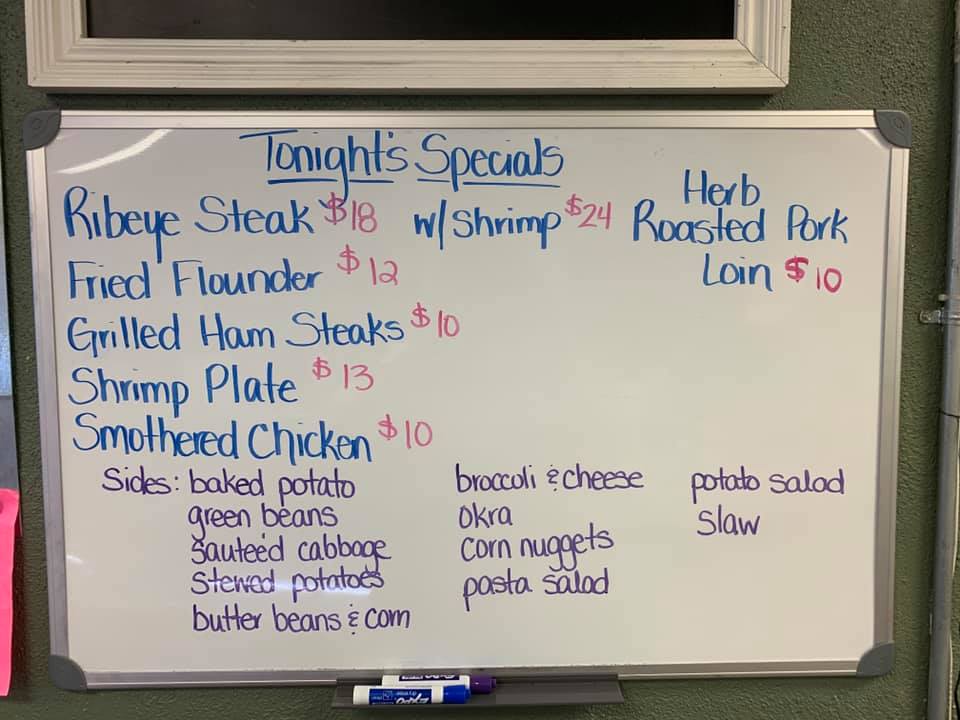 Tonight's Specials
Ribeye Steak $18 w/ Shrimp $24
Fried Flounder $12
Grilled Ham Steaks $10
Shrimp Plate $13
Smothered Chicken $10
Herb
Roasted Pork
Loin $10
Sides: baked potato
green beans
sauteéd cabbage
stewed potatoes
butter beans & corn
broccoli & cheese
okra
corn nuggets
pasta salad
potato salad
slaw
EXPO